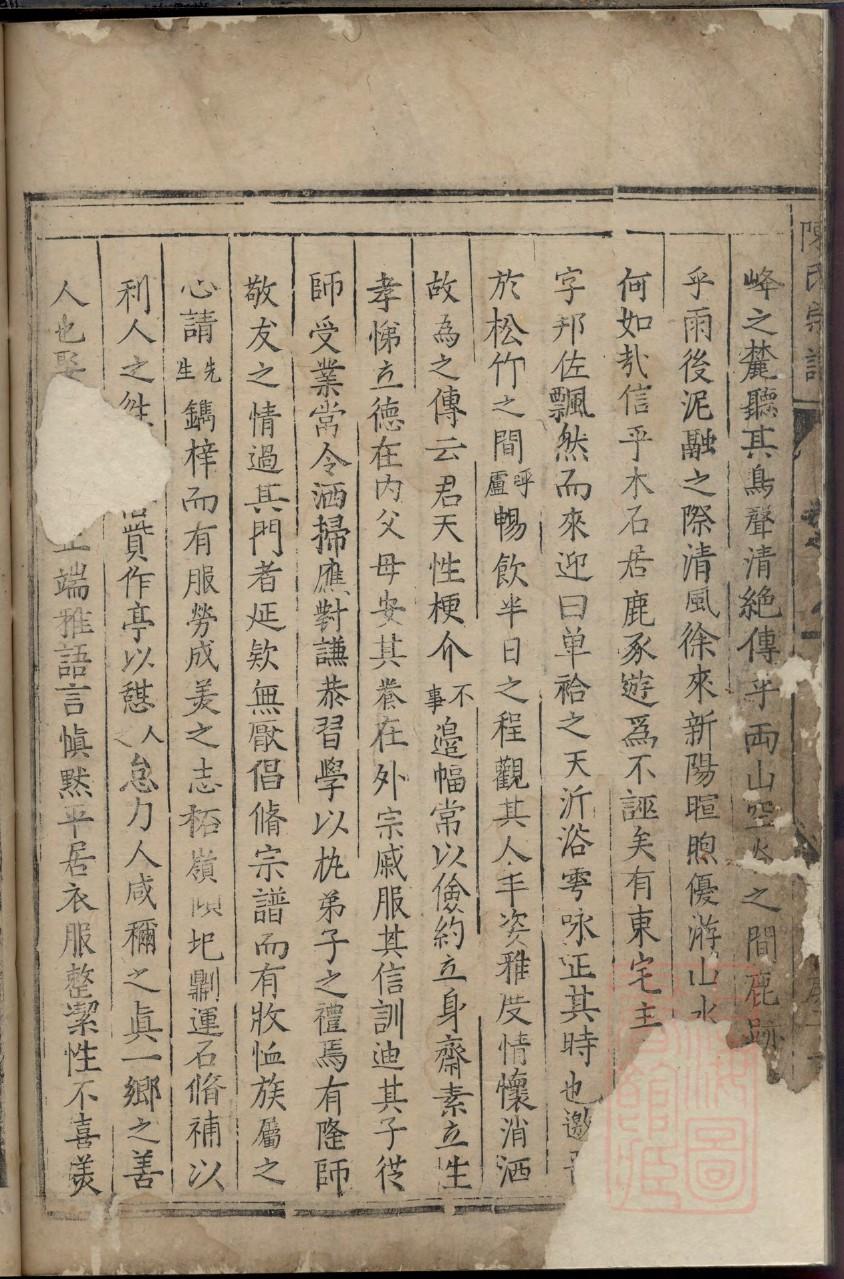 陳氏宗譜
峰之麓聽其鳥聲清絶傳乎兩山空 之間鹿跡
乎雨後泥融之際清風徐來新陽暄煦優游山水
何如哉信乎木石居鹿豕遊爲不誣矣有東宅主
字邦佐飄然而來迎曰单袷之天沂浴雩咏正其時也邀
於松竹之間呼盧暢飲半日之程觀其人丰姿雅度情懷消洒
故為之傳云君天性梗介不事邉幅常以儉約立身齋素立生
孝悌立德在内父母安其飬在外宗戚服其信訓迪其子從
師受業常令洒掃應對謙恭習學以執弟子之禮焉有隆師
敬友之情過其門者延欵無厭倡脩宗譜而有收恤族屬之
心請先生鐫梓而有服勞成美之志柘嶺傾圯剿運石脩補以
利人之徃 貲作亭以憇人之怠力人咸稱之眞一鄉之善
人也娶 端雅語言愼黙平居衣服整潔性不喜美